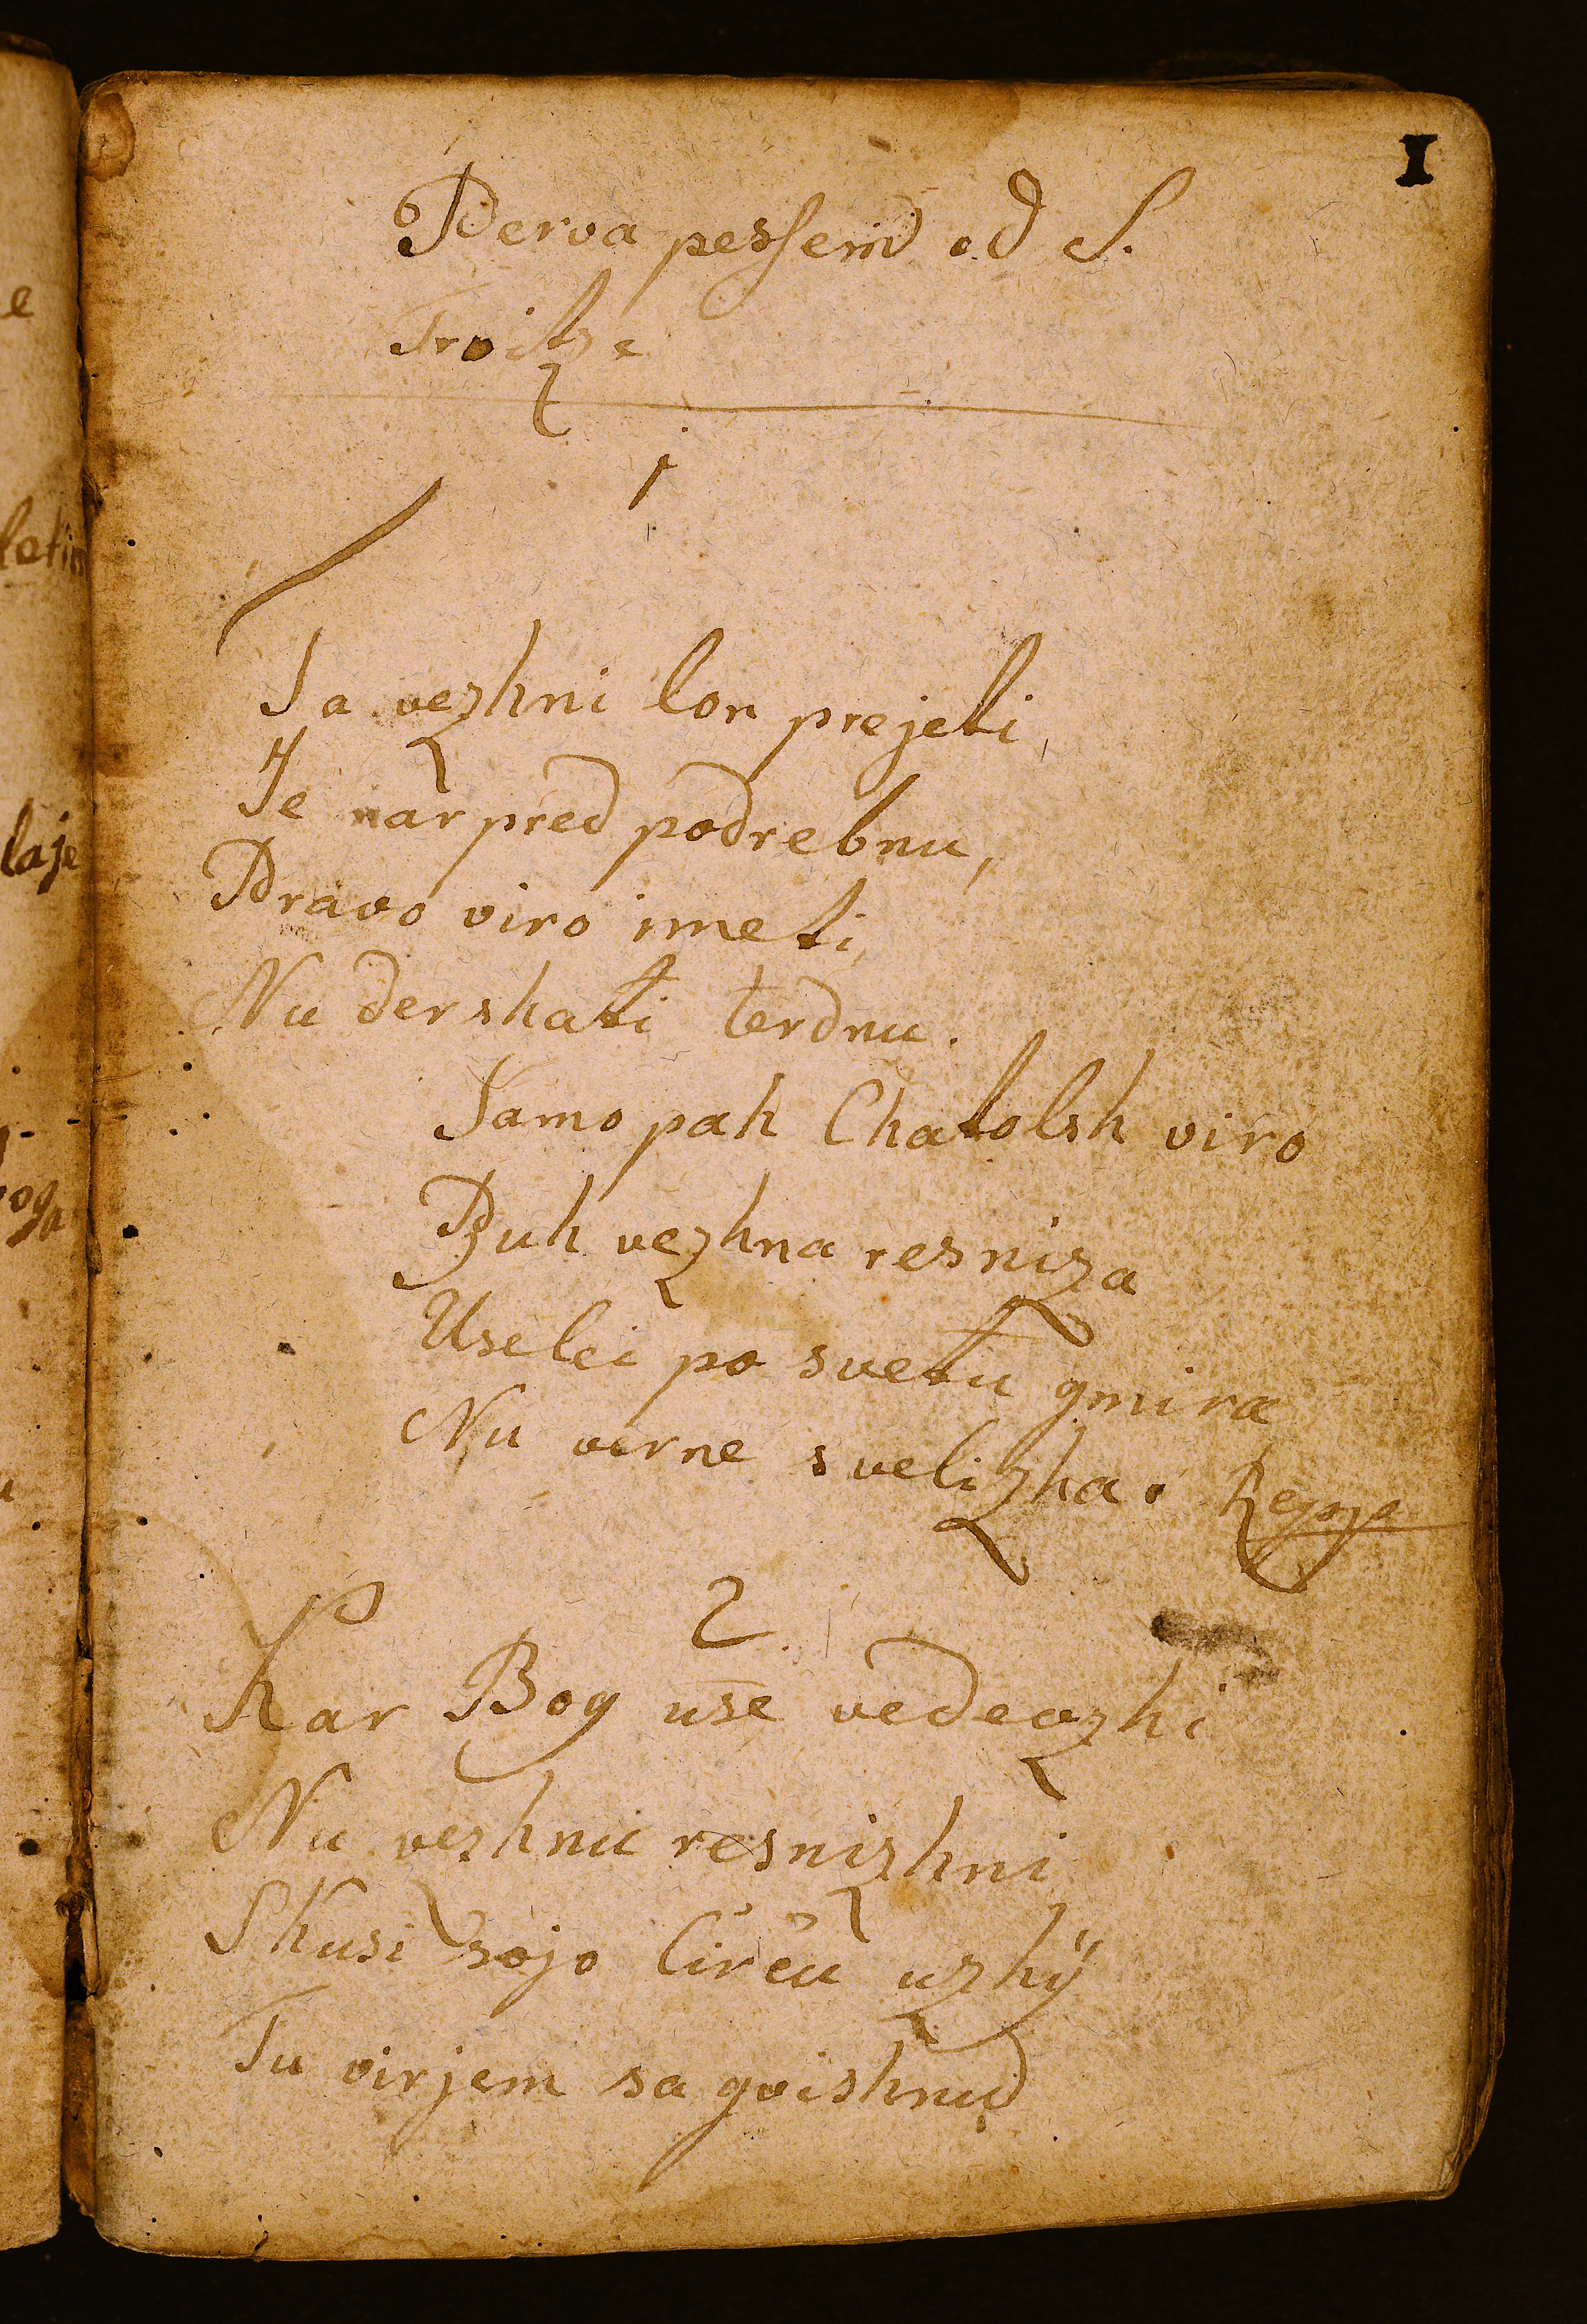 I
Perva pessem od S.
Troitze
1
Ta vezhni lon prejeti,
Je nar pred podrebnu,
Pravo viro imeti,
Nu dershati terdnu.
Samo pak Chatolsh viro
Buh vezhna resniza
Uselei po svetu gmira
Nu verne svelizha.
2
Kar Bog use vedeozhi
Nu vezhnu resnizhni
Skusi sojo Cirču uzhÿ
Tu virjem sa gvishnu